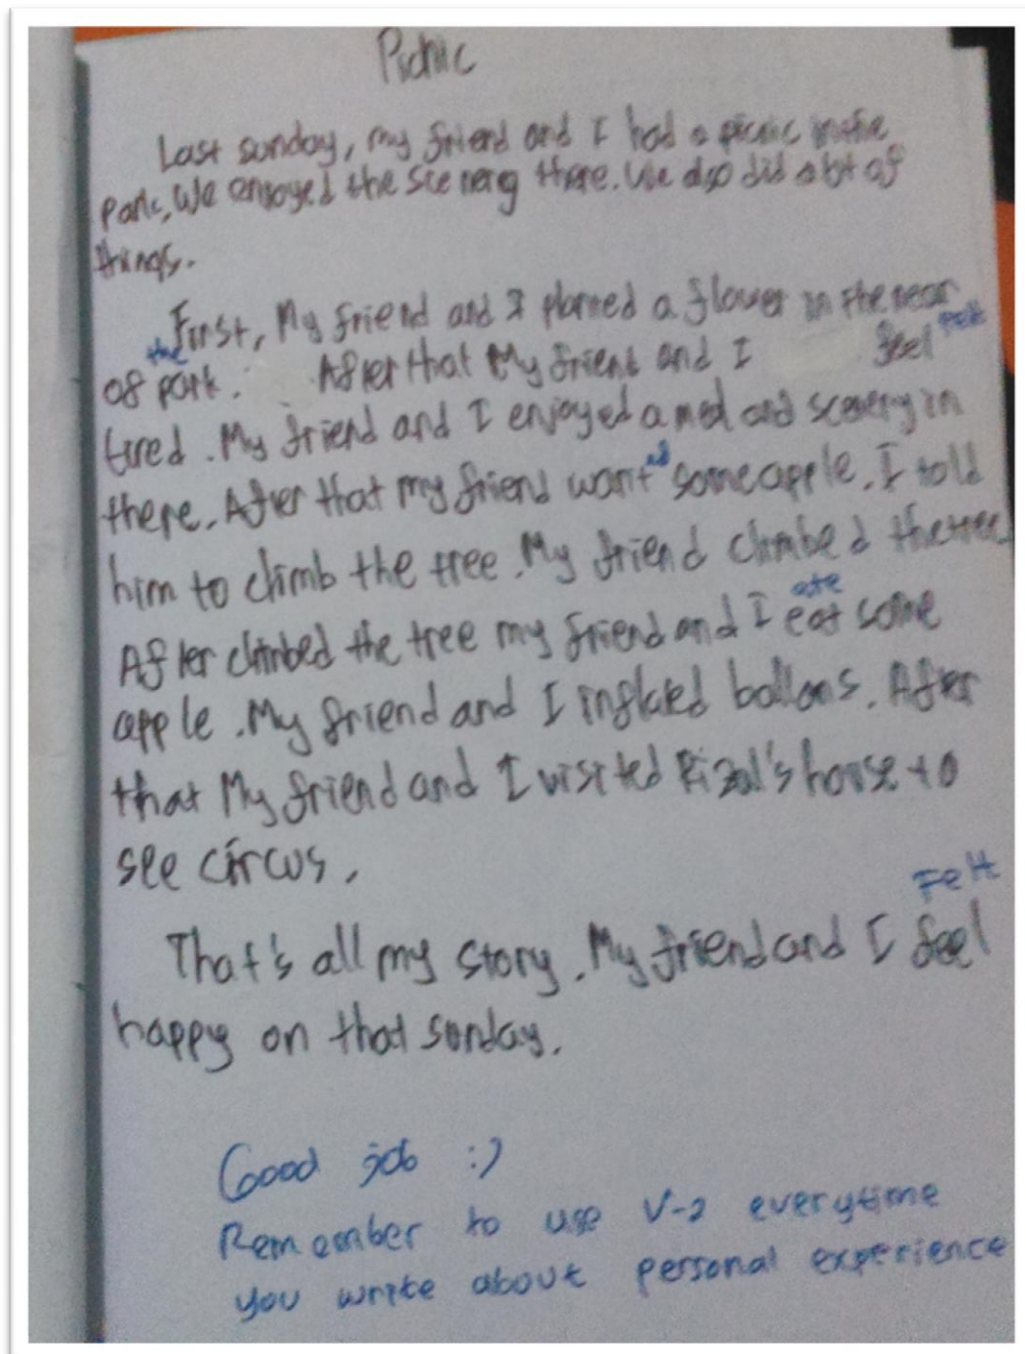 Picnic
Last sunday, my friend and I had a picnic in the
park, We enjoyed the scenery there. We also did a lot of
things.
First, My friend and I planted a flower in the near
the
felt
of park. After that My friend and I feel
tired. My friend and I enjoyed a meal and scenery in
ed
there. After that my friend want some apple. I told
him to climb the tree. My friend climbed the tree
ate
After climbed the tree my friend and I eat some
apple. My friend and I inflated ballons. After
that My friend and I visited Rizal's house to
see circus.
Felt
That's all my story. My friend and I feel
happy on that sunday.
Good job :)
Remember to use V-2 everytime
you write about personal experience